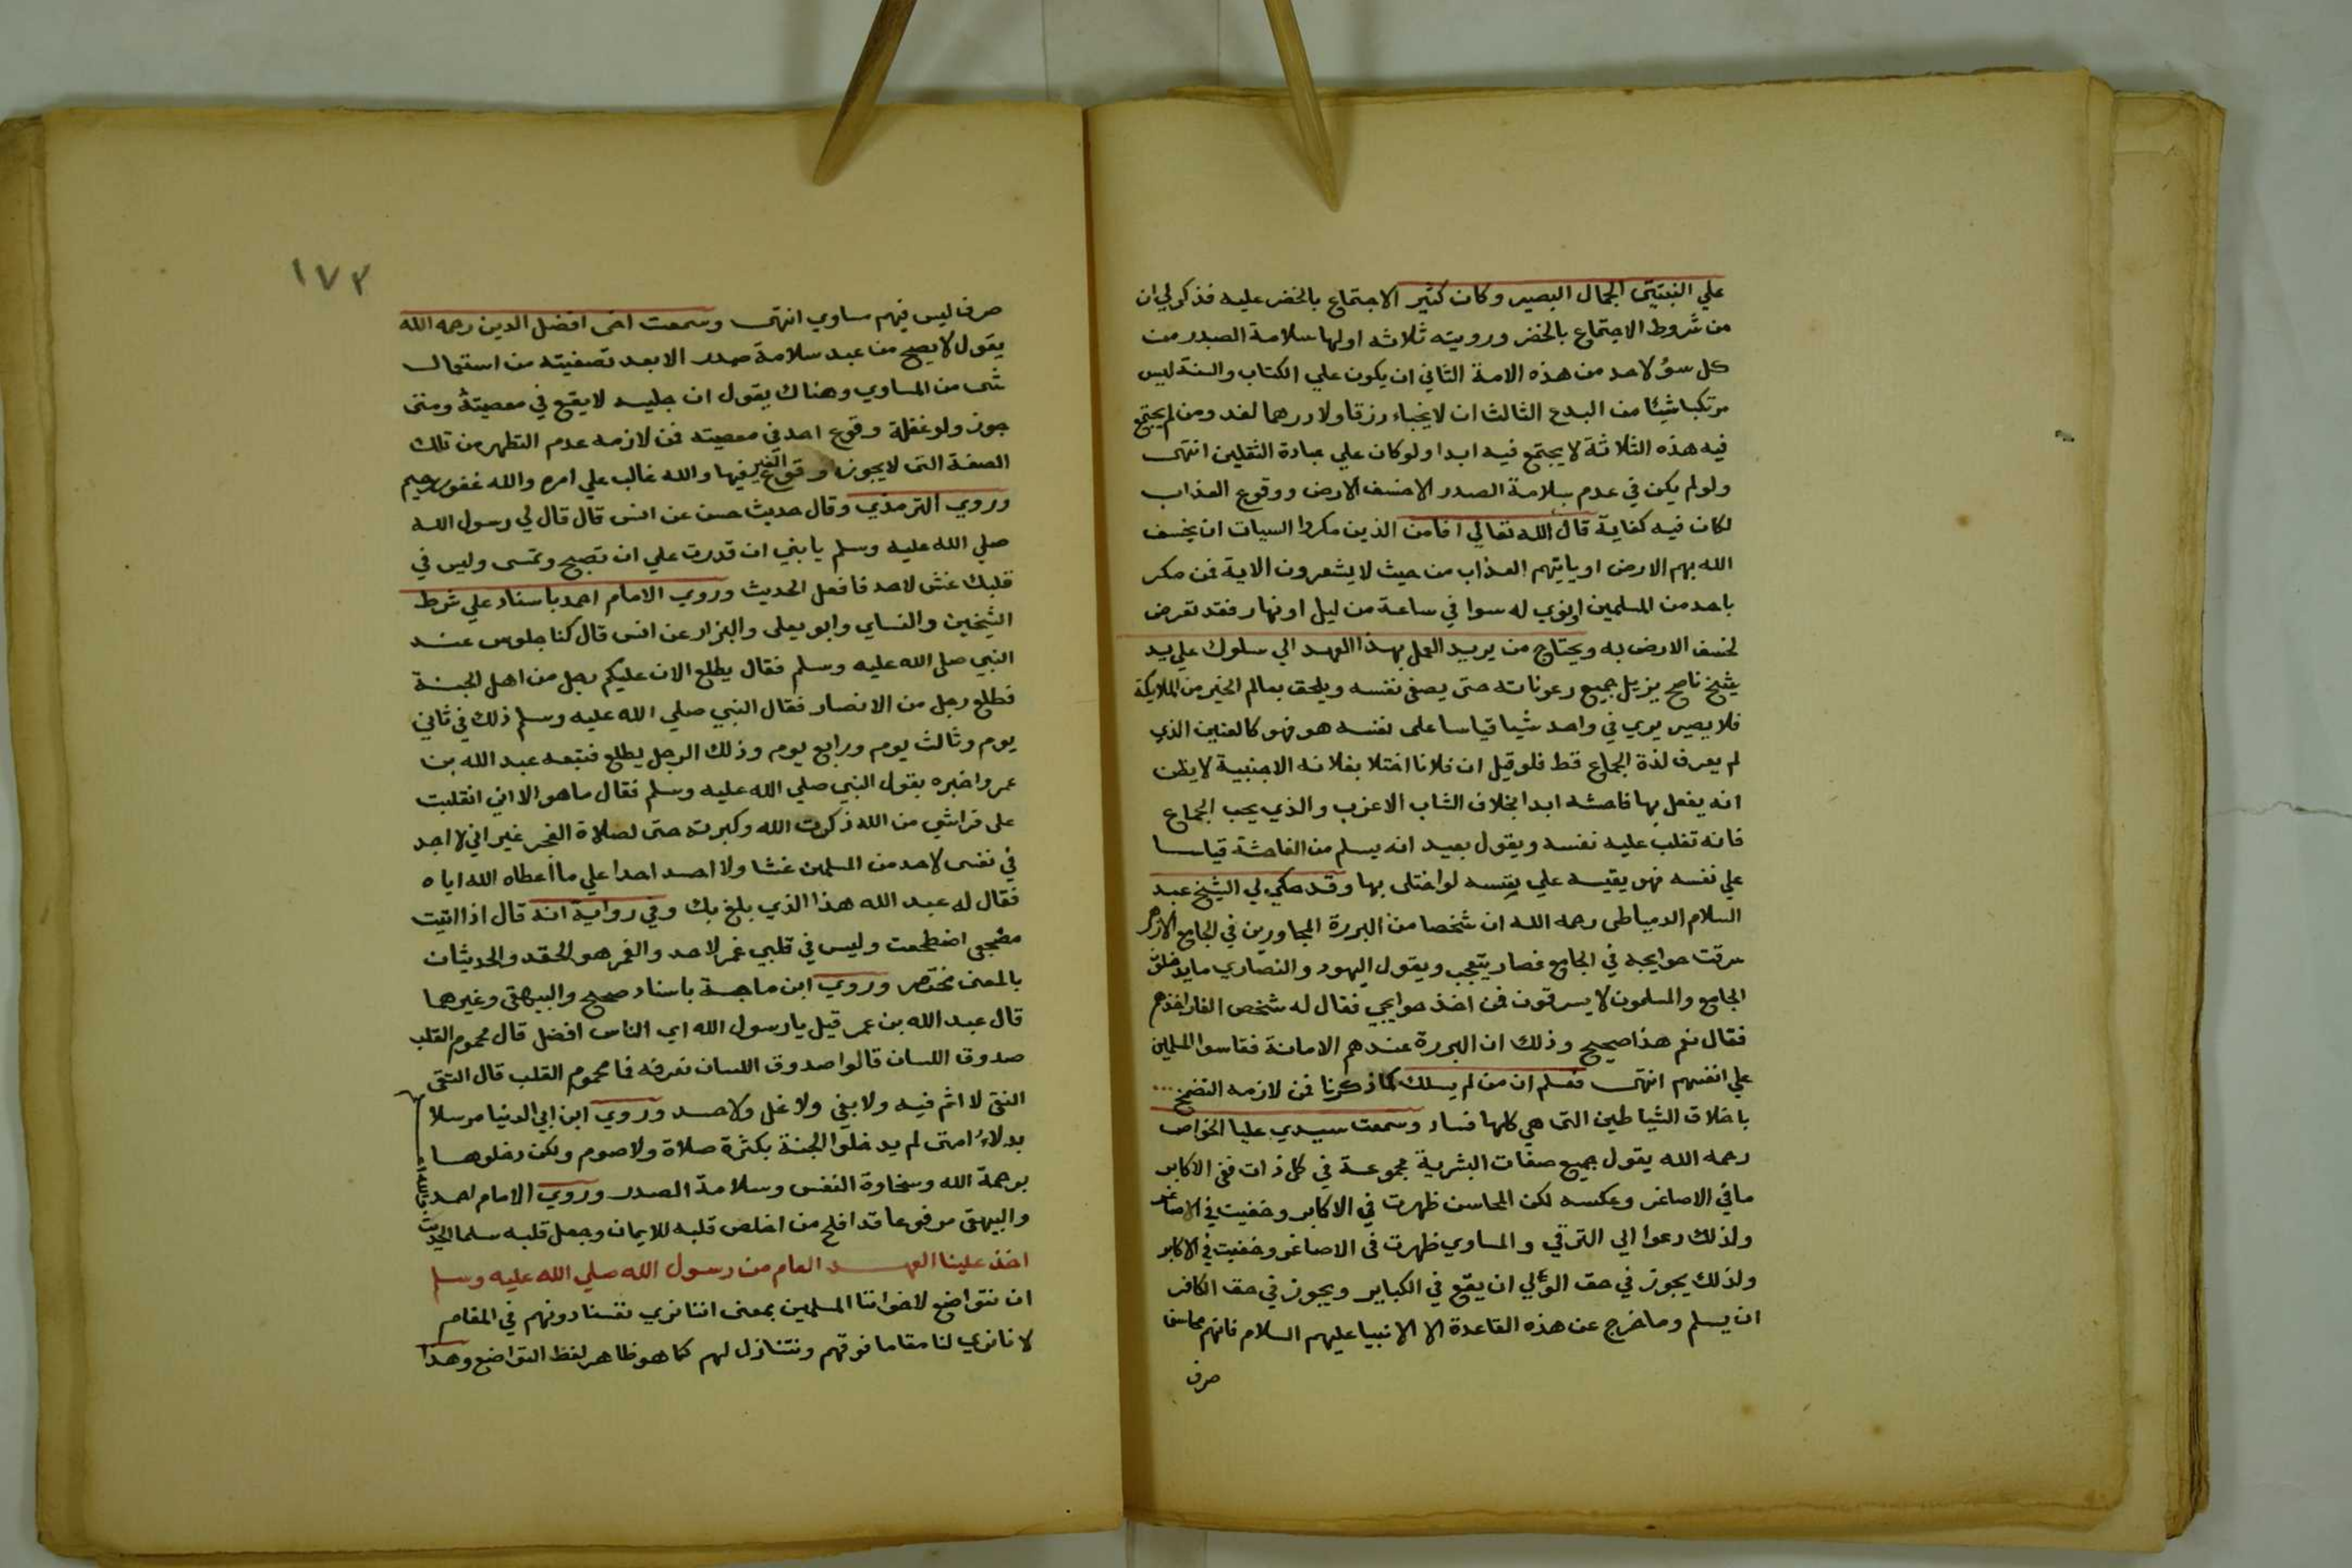 علي النبتيتى الجمال البصير وكان كثير الاجتماع بالخضر عليه فذكر لي ان
من شروط الاجتماع بالخضر ورويته ثلاثه اولها سلامة الصدر من
كل سؤ لاحد من هذه الامة الثاني ان يكون علي الكتاب والسنة ليس
مرتكبا شيئا من البدع الثالث ان لا يخباء رزقا ولا درهما لغد ومن لم يجتمع
فيه هذه الثلاثة لا يجتمع فيه ابدا ولو كان علي عبادة الثقلين انتهى
ولو لم يكن في عدم سلامة الصدر الا خسف الارض ووقوع العذاب
لكان فيه كفاية قال الله تعالي افامن الذين مكروا السيات ان يخسف
الله بهم الارض او ياتيهم العذاب من حيث لا يشعرون الاية فمن مكر
باحد من المسلمين اونوي له سوا في ساعة من ليل او نهار فقد تعرض
لخسف الارض به ويحتاج من يريد العمل بهذا العهد الي سلوك علي يد
شيخ ناصح يزيل جميع رعوناته حتى يصفى نفسه ويلحق بعالم الخير من الملايكة
فلا يصير يري في واحد شيا قياسا على نفسه هو فهو كالعنين الذي
لم يعرف لذة الجماع قط فلو قيل ان فلانا اختلا بفلانه الاجنبية لا يظن
انه يفعل بها فاحشه ابدا بخلاف الشاب الاعزب والذي يحب الجماع
فانه تغلب عليه نفسه ويقول بعيد انه يسلم من الفاحشة قياسا
علي نفسه فهو يقيسه علي نفسه لو اختلى بها وقد حكي لي الشيخ عبد
السلام الدمياطى رحمه الله ان شخصا من البررة المجاورين في الجامع الازهر
سرقت حوايجه في الجامع فصار يتعجب ويقول اليهود والنصاري ما يدخلون
الجامع والمسلمون لا يسرقون فمن اخذ حوايجي فقال له شخص الفار اخذهم
فقال نعم هذا صحيح وذلك ان البررة عندهم الامانة فقاسوا المسلمين
علي انفسهم انتهى فعلم ان من لم يسلك كما ذكرنا فمن لازمه التضمخ
باخلاق الشياطين التى هي كلها فساد وسمعت سيدي عليا الخواص
رحمه الله يقول جميع صفات البشرية مجموعة في كل ذات ففي الاكابر
ما في الاصاغر وعكسه لكن المحاسن ظهرت في الاكابر وخفيت في الاصاغر
ولذلك دعوا الي الترقي والمساوي ظهرت فى الاصاغر وخفيت في الاكابر
ولذلك يجوز في حق الولي ان يقع في الكباير ويجوز في حق الكافر
ان يسلم وما خرج عن هذه القاعدة الا الانبيا عليهم السلام فانهم محاسن
صرف
١٧٣
صرف ليس فيهم مساوي انتهى وسمعت اخى افضل الدين رحمه الله
يقول لا يصح من عبد سلامة صدر الا بعد تصفيته من استعمال
شى من المساوي وهناك يقول ان جليسه لا يقع في معصيته ومتى
جوز ولو غفلة وقوع احد في معصيته فمن لازمه عدم التطهر من تلك
الصفة التى لا يجوز وقوع الغير فيها والله غالب علي امره والله غفور رحيم
وروي الترمذي وقال حديث حسن عن انس قال قال لي رسول الله
صلي الله عليه وسلم يا بني ان قدرت علي ان تصبح وتمسى وليس في
قلبك غش لاحد فافعل الحديث وروي الامام احمد باسناد علي شرط
الشيخين والنساي وابو يعلى والبزار عن انس قال كنا جلوس عند
النبي صلى الله عليه وسلم فقال يطلع الان عليكم رجل من اهل الجنة
فطلع رجل من الانصار فقال النبي صلي الله عليه وسلم ذلك في ثاني
يوم وثالث يوم ورابع يوم وذلك الرجل يطلع فتبعه عبد الله بن
عمر واخبره بقول النبي صلي الله عليه وسلم فقال ما هو الا اني انقلبت
على فراشي من الله ذكرت الله وكبرته حتى لصلاة الفجر غير اني لا اجد
في نفسى لاحد من المسلمين غشا ولا احسد احدا علي ما اعطاه الله اياه
فقال له عبد الله هذا الذي بلغ بك وفي رواية انه قال اذا اتيت
مضجعى اضطجعت وليس في قلبي غمر لاحد والغمر هو الحقد والحديثان
بالمعنى مختصر وروي ابن ماجة باسناد صحيح والبيهقى وغيرهما
قال عبد الله بن عمر قيل يا رسول الله اي الناس افضل قال محموم القلب
صدوق اللسان قالوا صدوق اللسان نعرفه فما محموم القلب قال التقى
النقى لا اثم فيه ولا بغي ولا غل ولا حسد وروي ابن ابي الدنيا مرسلا
بدلاء امتى لم يدخلوا الجنة بكثرة صلاة ولا صوم ولكن دخلوها
برحمة الله وسخاوة النفس وسلامة الصدر وروي الامام احمد
والبيهقى مرفوعا قد افلح من اخلص قلبه للايمان وجعل قلبه سلما الحديث
اخذ علينا العهد العام من رسول الله صلي الله عليه وسلم
ان نتواضع لاخواننا المسلمين بمعنى اننا نري نفسنا دونهم في المقام
لا نا نري لنا مقاما فوقهم ونتنازل لهم كما هو ظاهر لفظ التواضع وهذا